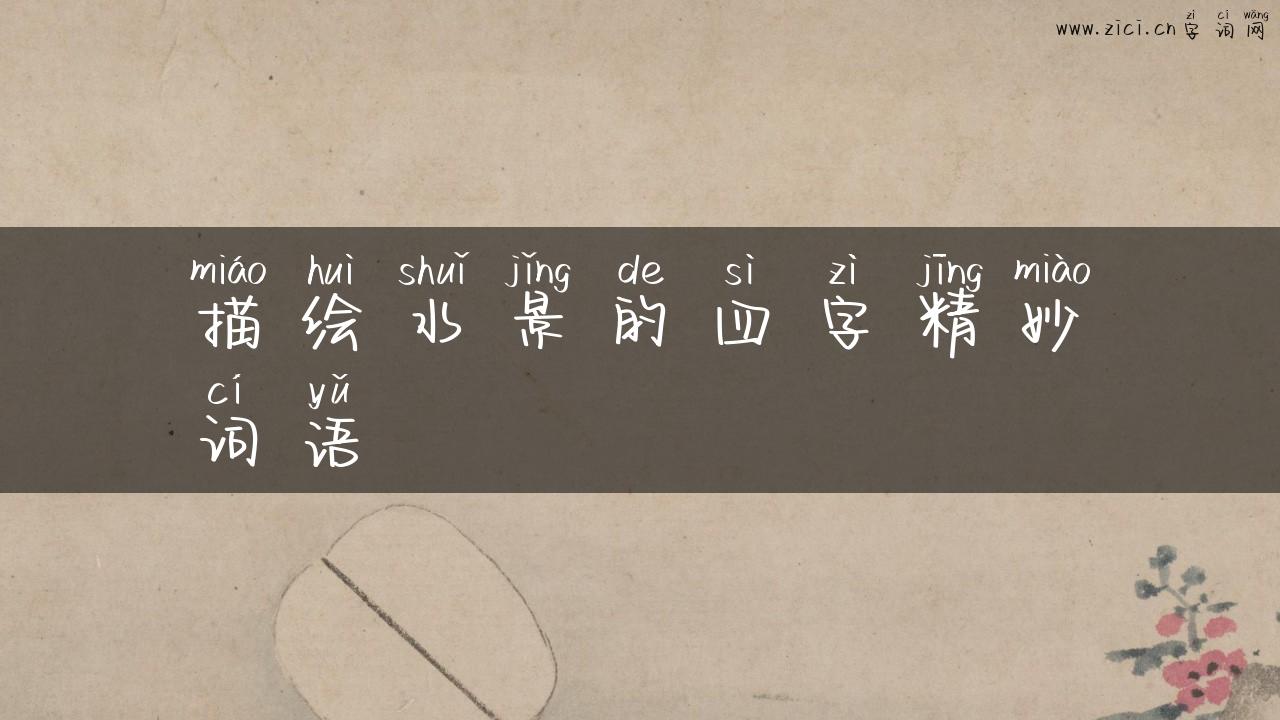 zì cí wǎng
www.zici.cn字词网
miáo huì shuǐ jǐng de sì zì jīng miào
描绘水景的四字精妙
cí yǔ
词语